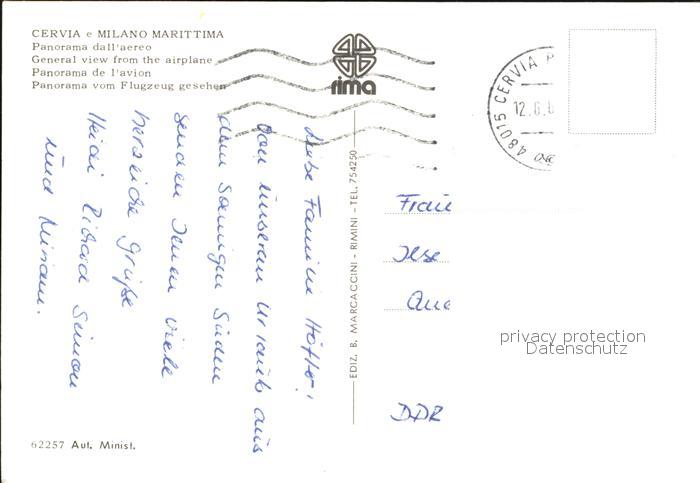 CERVIA e MILANO MARITTIMA
Panorama dall'aereo
General view from the airplane
Panorama de l'avion
Panorama vom Flugzeug gesehen
rima
48015 CERVIA
12.6.
Liebe Familie Höfto!
Von unserem Urlaub aus
dem sonnigen Süden
senden Ihnen viele
herzliche Grüße
Heidi Richard Simon
und Miriam.
EDIZ. B. MARCACCINI - RIMINI - TEL. 754250
Frau
Ilse
DDR
privacy protection
Datenschutz
62257 Aut. Minist.